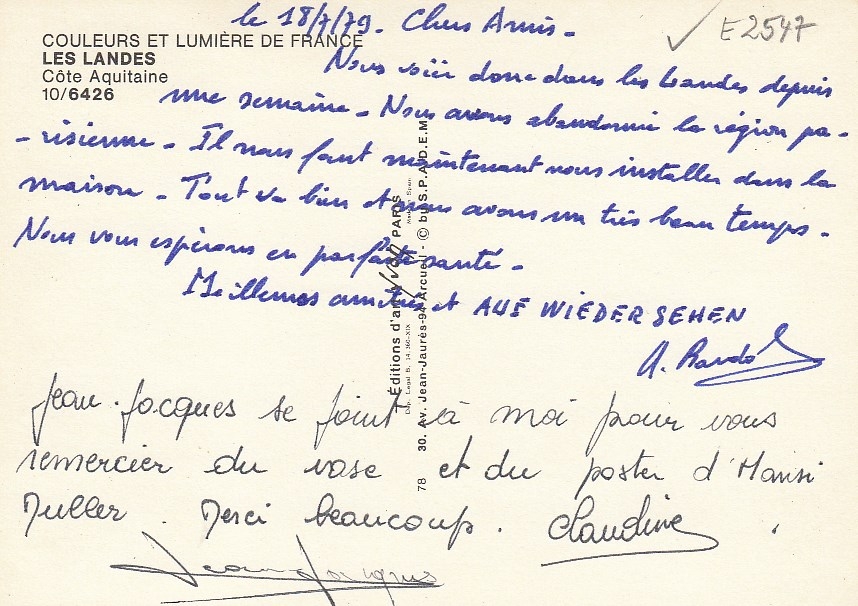 le 18/7/79. Chers Amis -
E 2547
COULEURS ET LUMIÈRE DE FRANCE
LES LANDES
Côte Aquitaine
10/6426
Nous voici donc dans les Landes depuis
une semaine - Nous avons abandonné la région pa-
- risienne - Il nous faut maintenant nous installer dans la
maison - Tout va bien et nous avons un très beau temps -
Nous vous espérons en parfaite santé -
Meilleures amitiés et AUF WIEDER SEHEN
Jean-Jacques se joint à moi pour vous
remercier du vase et du poster d'Hansi
Muller. Merci beaucoup. Claudine
Jean Jacques
Éditions d'art YVON PARIS
Dép. Légal B.
30, Av. Jean-Jaurès-94 Arcueil - © by S.P.A.D.E.M.
78